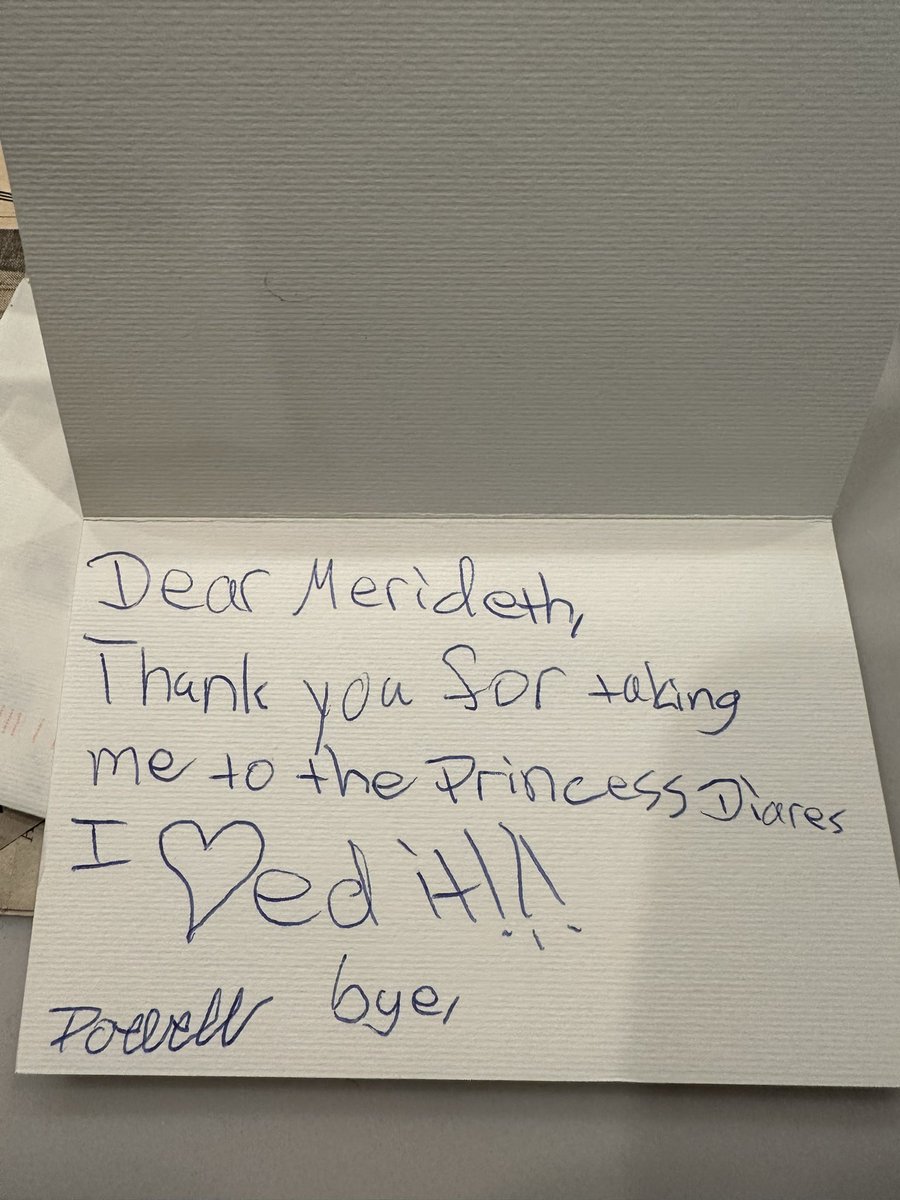 Dear Merideth,
Thank you for taking
me to the Princess Diares
I ♡ed it!!!
bye,
Powell